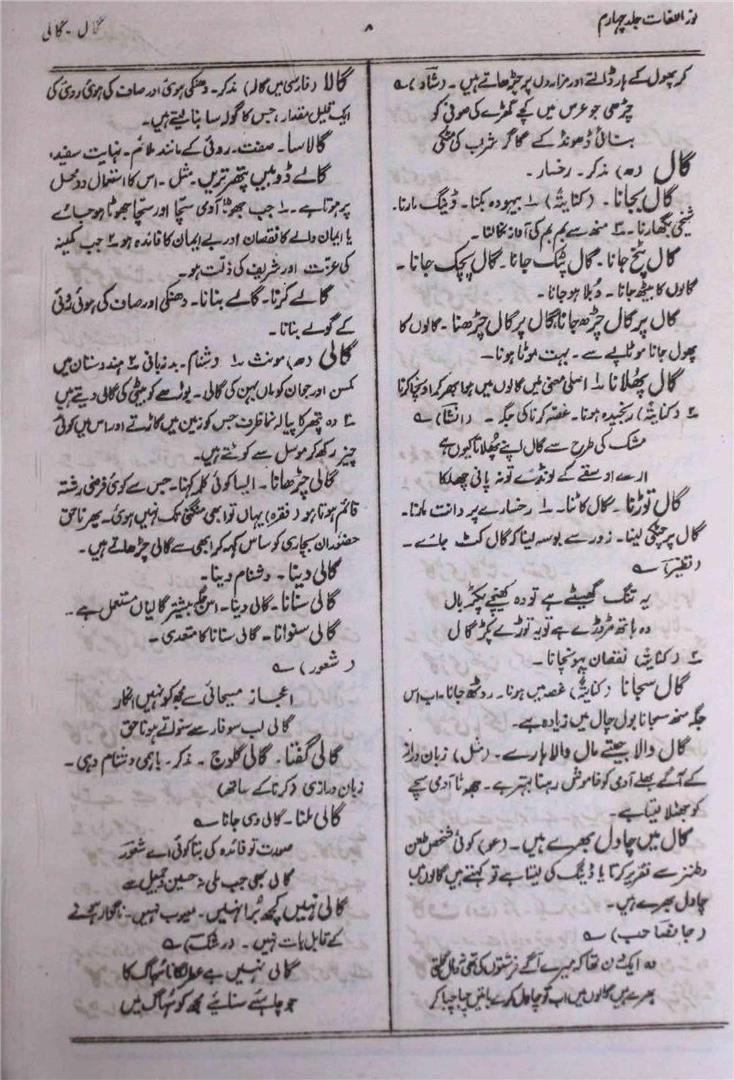 نور اللغات جلد چہارم
۸
گال - گالی
کر پھول کے ہار ڈالتے اور مزاروں پر چڑھاتے ہیں ۔ (شاد) ؎
چڑھی جو عرس میں کچے گھڑے کی صوفی کو
بسنتی ڈھونڈ کے گاگر شراب کی مٹکی
گال (ھ) مذکر ۔ رخسار ۔
گال بجانا ۔ (کنایۃً) ۱ بیہودہ بکنا ۔ ڈینگ مارنا ۔
شیخی بگھارنا ۔ ۲ منھ سے بم بم کی آواز نکالنا ۔
گال پچ جانا ۔ گال پٹک جانا ۔ گال پچک جانا ۔
گالوں کا بیٹھ جانا ۔ دُبلا ہو جانا ۔
گال پر گال چڑھ جانا، گال پر گال چڑھنا ۔ گالوں کا
پھول جانا موٹاپے سے ۔ بہت موٹا ہونا ۔
گال پھلانا ۱ اصلی معنی میں گالوں میں ہوا بھر کر اونچا کرنا
۲ (کنایۃً) رنجیدہ ہونا ۔ غصہ کرنا کی جگہ ۔ (انشا) ؎
مشک کی طرح سے گال اپنے پھلاتا کیوں ہے
ارے او سقے کے لونڈے تو نہ پانی چھلکا
گال توڑنا ۔ گال کاٹنا ۔ ۱ رخسارے پر دانت مارنا ۔
گال پر چٹکی لینا ۔ زور سے بوسہ لینا کہ گال کٹ جائے ۔
(نظیر) ؎
یہ تنگ گھسیٹے ہے تو وہ کھینچے پکڑ بال
وہ ہاتھ مروڑے ہے تو یہ توڑے پکڑ گال
۲ (کنایۃً) نقصان پہونچانا ۔
گال سجانا (کنایۃً) غصہ میں ہونا ۔ روٹھ جانا ۔ اب اس
جگہ منھ سجانا بول چال میں زیادہ ہے ۔
گال والا جیتے مال والا ہارے ۔ (مثل) زبان دراز
کے آگے بھلے آدمی کو خاموش رہنا بہتر ہے ۔ جھوٹا آدمی سچے
کو جھٹلا لیتا ہے ۔
گال میں چاول بھرے ہیں ۔ (عو) کوئی شخص طعن
و طنز سے تقریر کرتا یا ڈینگ کی لیتا ہے تو کہتے ہیں گالوں میں
چاول بھرے ہیں ۔
(جانصاحب) ؎
وہ ایک دن تھا کہ میرے آگے فرشتوں کی تھی نہ دال گلتی
بھرے ہیں گالوں میں اب تو چاول کرے باتیں چبا چبا کر
گالا (فارسی میں گالہ) مذکر ۔ دھنکی ہوئی اور صاف کی ہوئی روئی کی
ایک قلیل مقدار، جس کا گولہ سا بنا لیتے ہیں ۔
گالا سا ۔ صفت ۔ روئی کے مانند ملائم ۔ نہایت سفید ۔
گالے ڈوبیں پتھر تریں ۔ مثل ۔ اس کا استعمال دو محل
پر ہوتا ہے ۔ ۱ جب جھوٹا آدمی سچا اور سچا جھوٹا ہو جائے
یا ایمان والے کا نقصان اور بے ایمان کا فائدہ ہو ۲ جب کمینہ
کی عزت اور شریف کی ذلت ہو ۔
گالے کرنا ۔ گالے بنانا ۔ دھنکی اور صاف کی ہوئی روئی
کے گولے بنانا ۔
گالی (ھ) مونث ۱ دشنام ۔ بدزبانی ۲ ہندوستان میں
کمسن اور جوان کو ماں بہن کی گالی ۔ بوڑھے کو بیٹی کی گالی دیتے ہیں
۳ وہ پتھر کا پیالہ نما ظرف جس کو زمین میں گاڑتے اور اس میں کوئی
چیز رکھ کر موسل سے کوٹتے ہیں ۔
گالی چڑھانا ۔ ایسا کوئی کلمہ کہنا ۔ جس سے کوئی فرضی رشتہ
قائم ہوتا ہو (فقرہ) یہاں تو ابھی منگنی تک نہیں ہوئی ۔ پھر ناحق
حضور ان بیچاری کو ساس کہہ کر ابھی سے گالی چڑھاتے ہیں ۔
گالی دینا ۔ دشنام دینا ۔
گالی سنانا ۔ گالی دینا ۔ اس جگہ بیشتر گالیاں مستعمل ہے ۔
گالی سنوانا ۔ گالی سنانا کا متعدی ۔
(شعور) ؎
اعجاز مسیحائی سے مجھ کو نہیں انکار
گالی لب سوفار سے سنواتے ہو ناحق
گالی گفتا ۔ گالی گلوچ ۔ مذکر ۔ باہمی دشنام دہی ۔
زبان درازی (کرنا کے ساتھ)
گالی ملنا ۔ گالی دی جانا ؎
سعدت تو فائدہ کی بتا کوئی اے شعور
گالی بھی جب ملی نہ حسین و جمیل سے
گالی نہیں کچھ بُرا نہیں ۔ معیوب نہیں ۔ ناگوار سمجھنے
کے قابل بات نہیں ۔ (رشک) ؎
گالی نہیں ہے عطر لگانا سُہاگ کا
جو چاہئے سنائیے مجھ کو سُہاگ میں